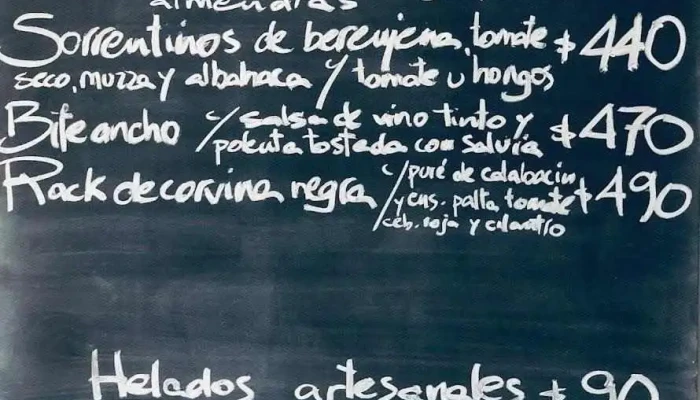 almendras
Sorrentinos de berenjena, tomate $440
seco, muzza y albahaca / tomate u hongos
Bife ancho c/ salsa de vino tinto y $470
polenta tostada con salvia
Rack de corvina negra c/puré de calabacín $490
y ens. palta, tomate
ceb. roja y cilantro
Helados artesanales $90